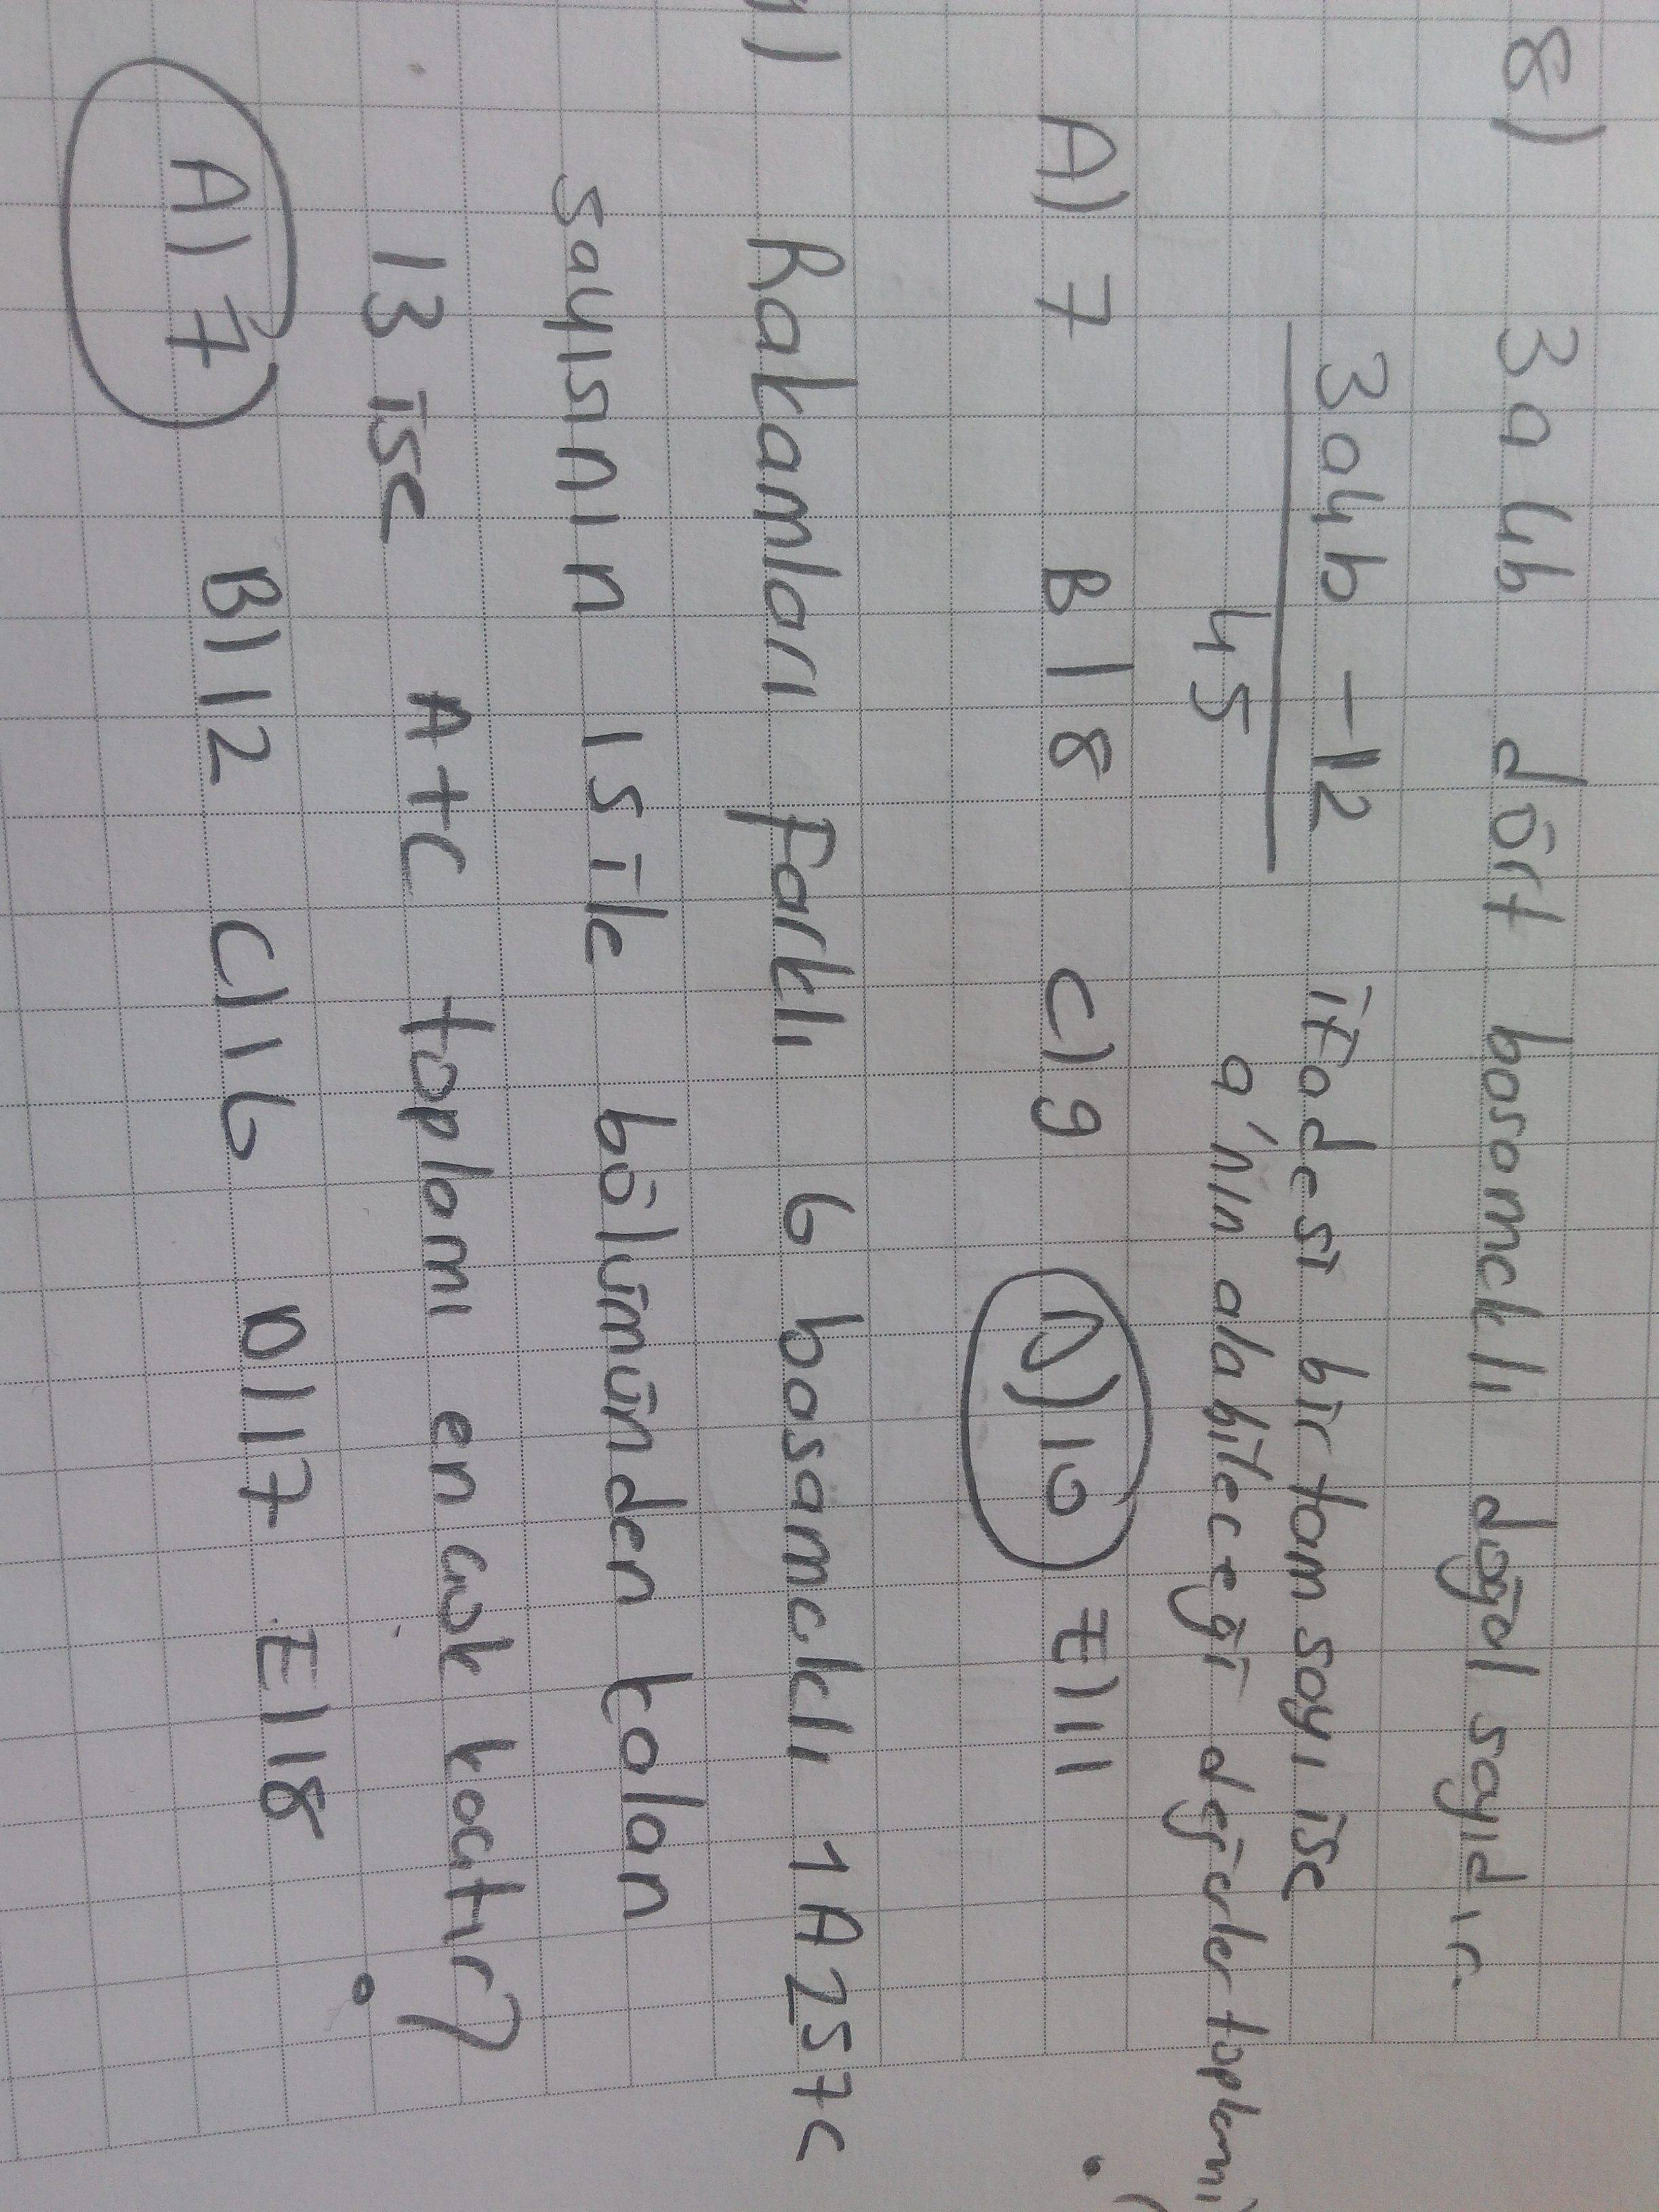 8) 3a4b dört basamaklı doğal sayıdır.
3a4b - 12 ifadesi bir tam sayı ise
45 a'nın alabileceği değerler toplamı
A) 7 B) 8 C) 9 D) 10 E) 11
Rakamları farklı 6 basamaklı 1A257C
sayısının 15 ile bölümünden kalan
13 ise A+C toplamı en çok kaçtır?
A) 7 B) 12 C) 16 D) 17 E) 18